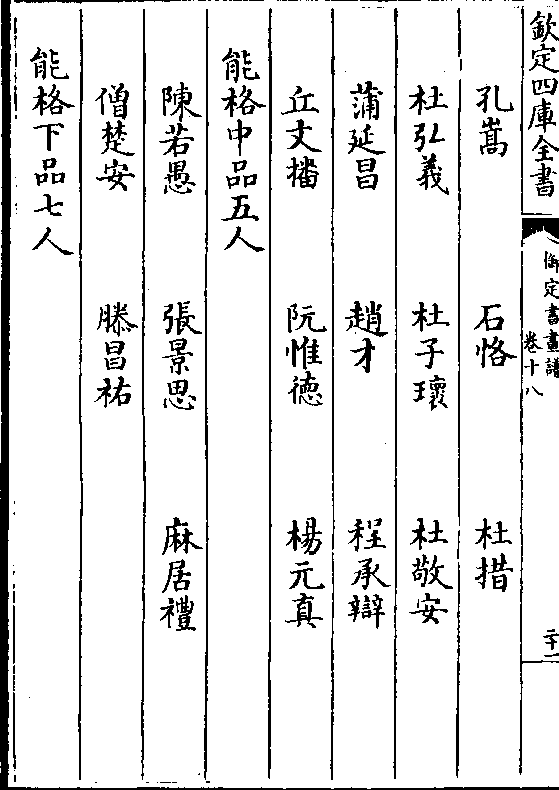 欽定四庫全書
御定書畫譜
卷十八
二十一
孔嵩 石恪 杜措
杜弘義 杜子瓌 杜敬安
蒲延昌 趙才 程承辯
丘文播 阮惟德 楊元真
能格中品五人
陳若愚 張景思 麻居禮
僧楚安 滕昌祐
能格下品七人